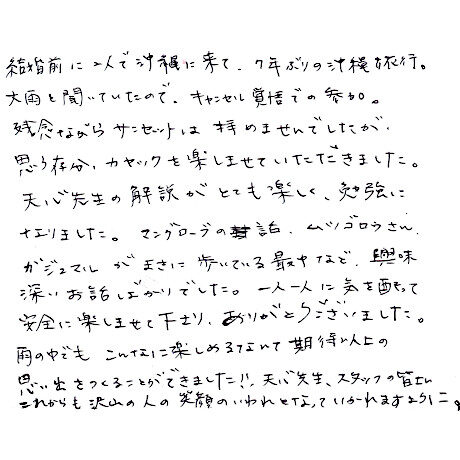 結婚前に2人で沖縄に来て、7年ぶりの沖縄旅行。
大雨と聞いていたので、キャンセル覚悟での参加。
残念ながらサンセットは拝めませんでしたが、
思う存分、カヤックを楽しませていただきました。
天心先生の解説がとても楽しく、勉強に
なりました。マングローブの話、ムツゴロウさん、
ガジュマルがまさに歩いている最中など、興味
深いお話しばかりでした。一人一人に気を配って
安全に楽しませて下さり、ありがとうございました。
雨の中でもこんなに楽しめるなんて期待以上の
思い出をつくることができました!!天心先生、スタッフの皆さん
これからも沢山の人の笑顔のいわれとなっていかれますように。